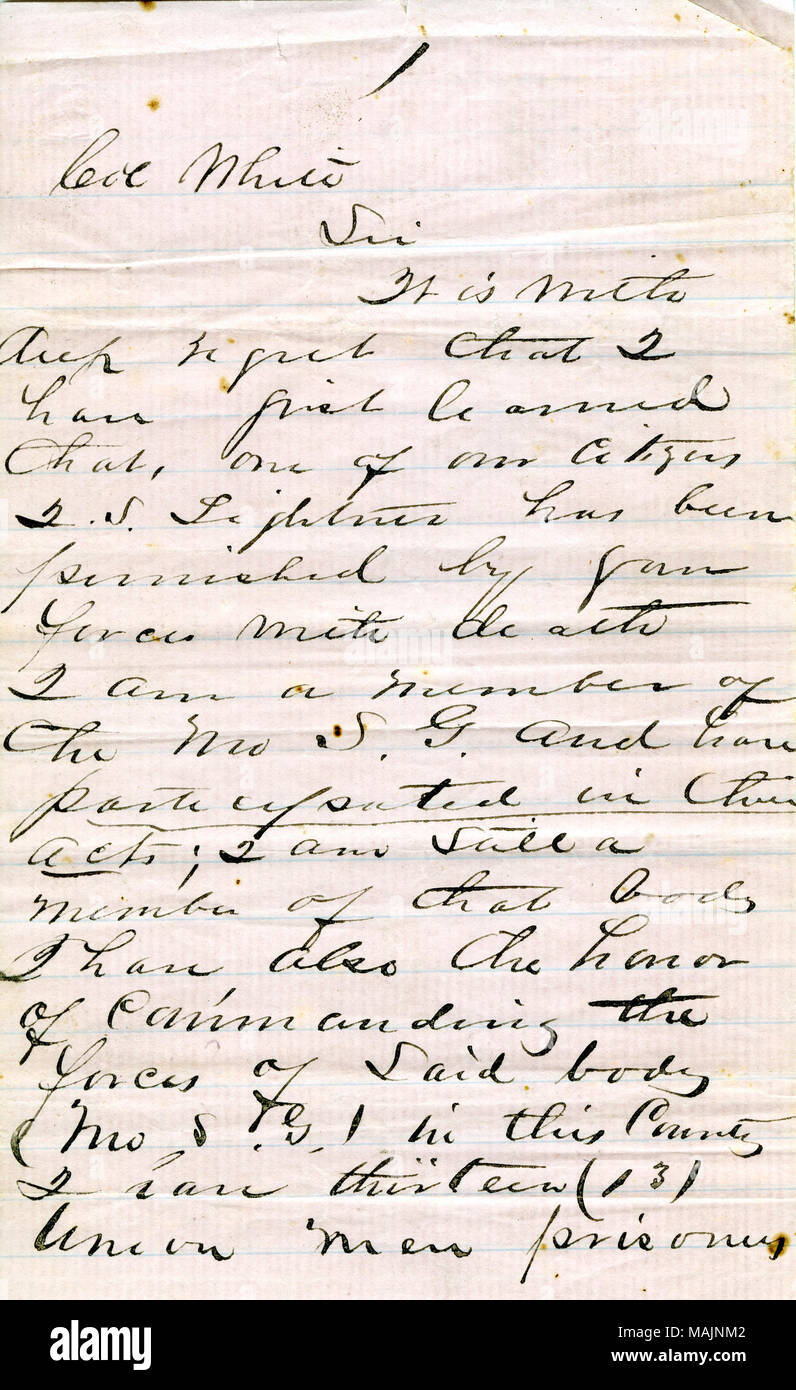 1
Col White
Sir
It is with
deep regret that I
have just learned
that, one of our Citizens
I. S. Lightner has been
punnished by your
forces with death
I am a member of
the Mo S. G. and have
participated in their
acts; I am still a
member of that body
I have also the honor
of commanding the
forces of said body
(Mo S. G.) in this County
I have thirteen (13)
Union men prisoners
alamy
Image ID: MAJNM2
www.alamy.com